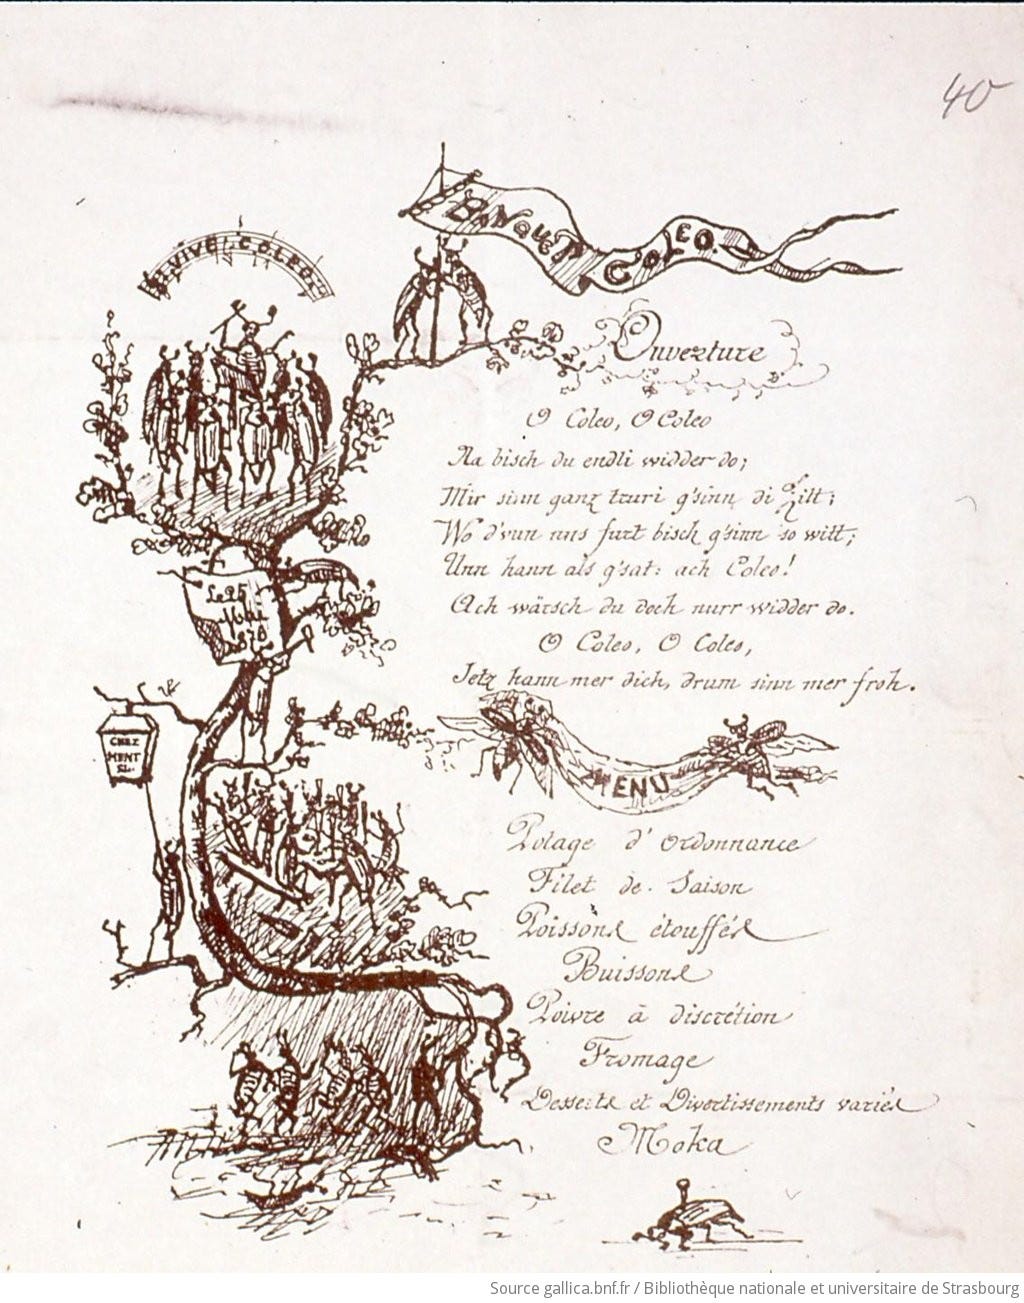 40
BANQUET COLEO.
VIVE COLEO
Ouverture
O Coleo, O Coleo
Na bisch du endli widder do;
Mir sinn ganz truri g'sinn di Zitt;
Wo d'vun uns furt bisch g'sinn so witt;
Unn hann als g'sat: ach Coleo!
Ach wärsch du doch nurr widder do.
O Coleo, O Coleo,
Jetz hann mer dich, drum sinn mer froh.
Le 25
Mai
1878
CHEZ
MENT
SL.
MENU
Potage d'ordonnance
Filet de Saison
Poissons étouffés
Buissons
Poivre à discrétion
Fromage
Desserts et Divertissements variés
Moka
Source gallica.bnf.fr / Bibliothèque nationale et universitaire de Strasbourg